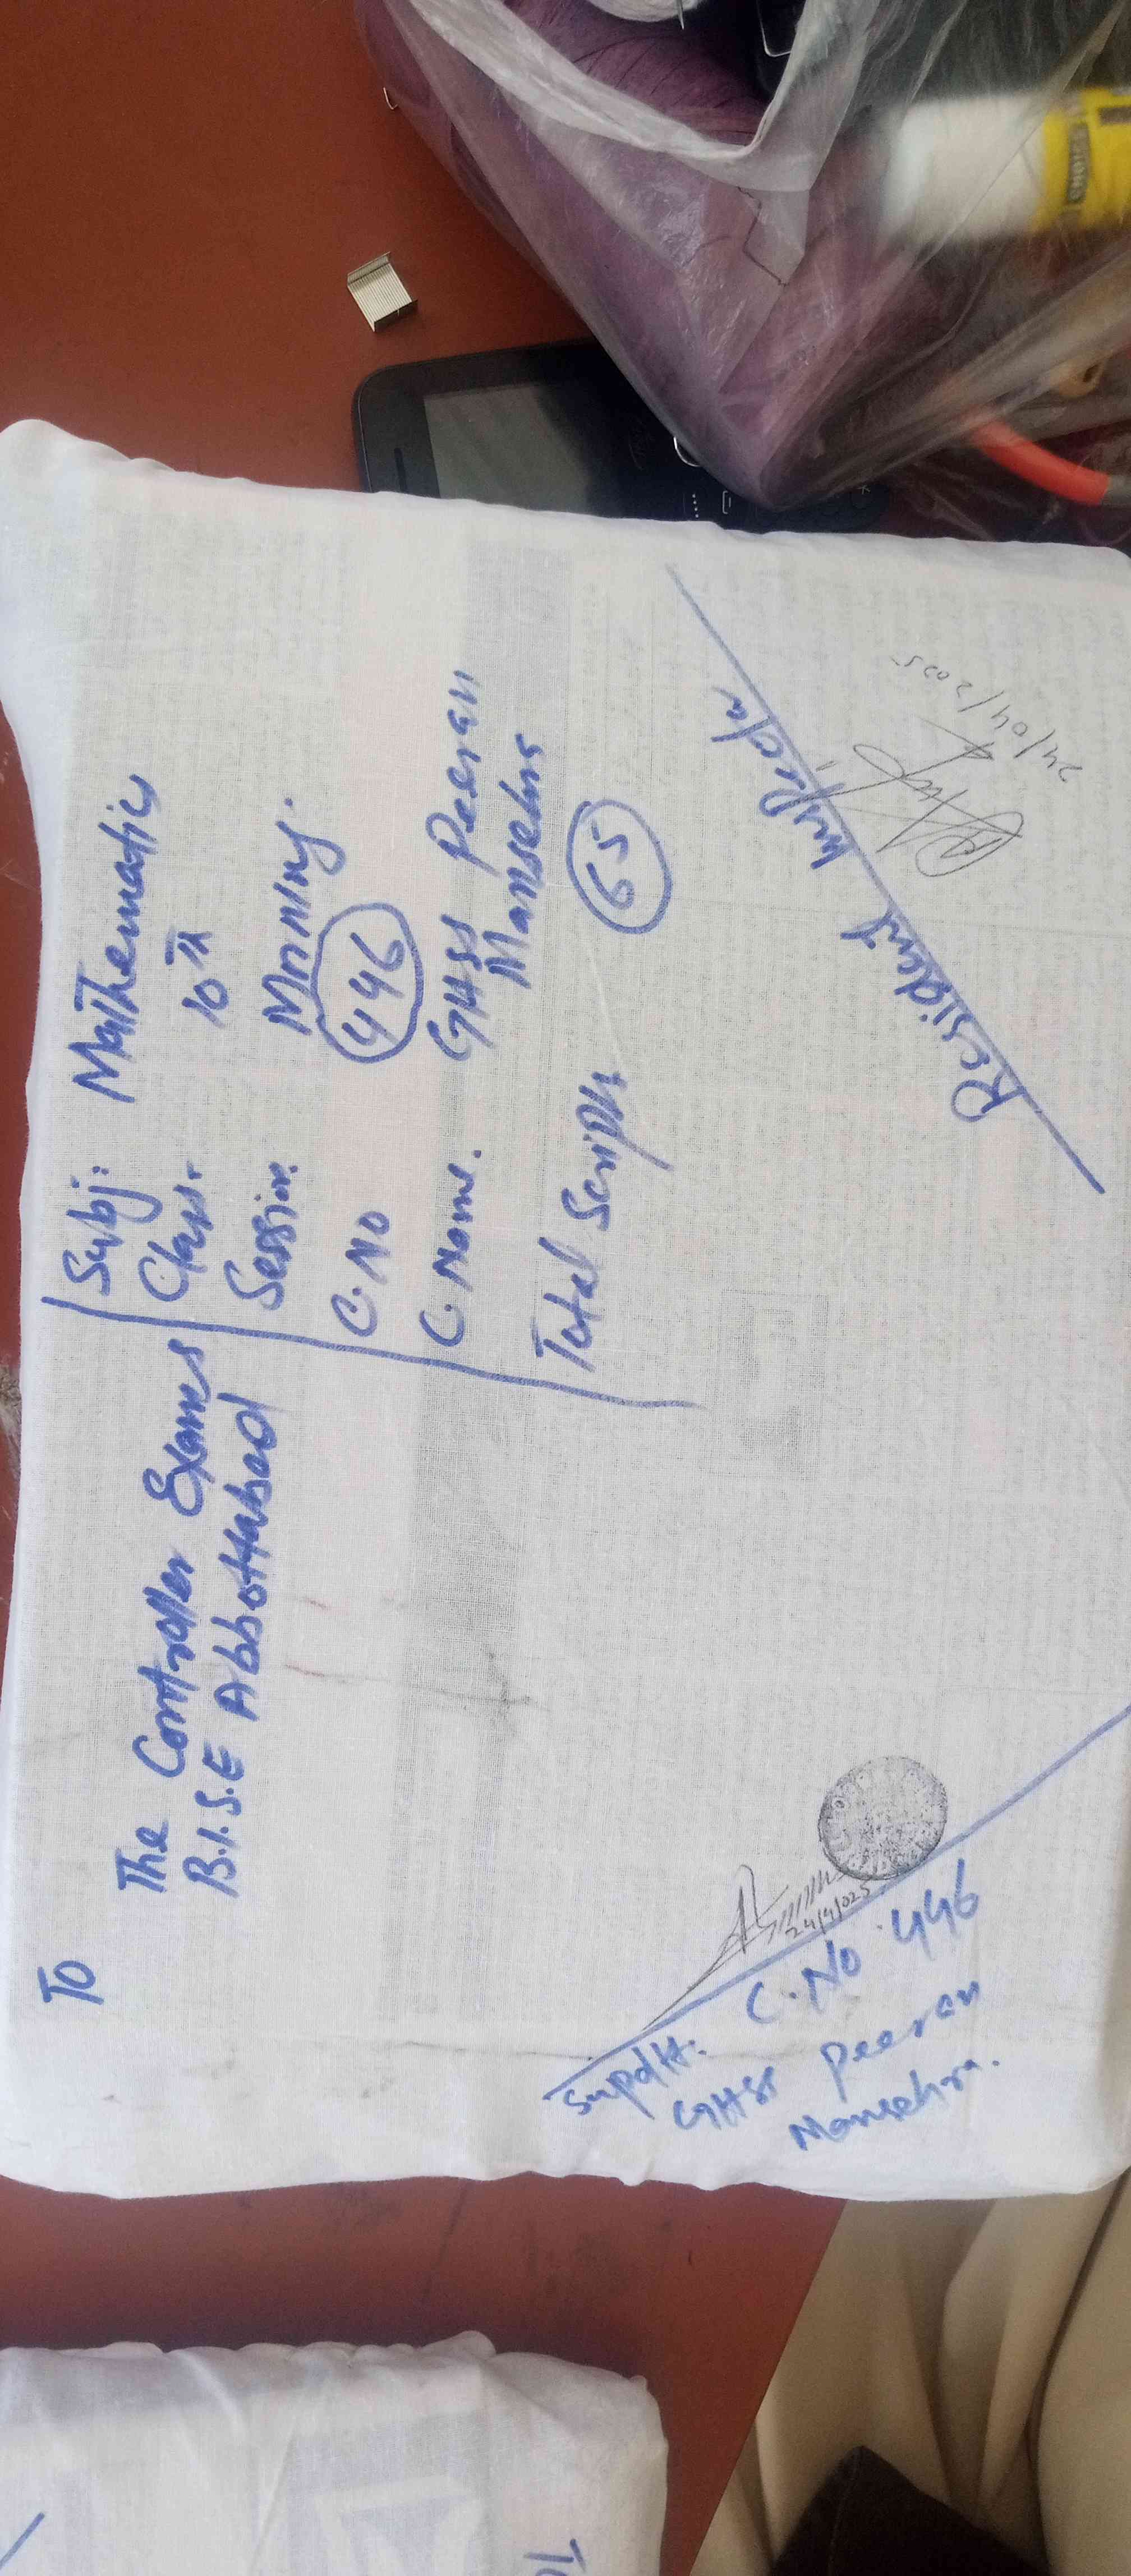 To
The Controller Exams
B.I.S.E Abbottabad
Subj: Mathematics
Class. 10th
Session. Morning.
C.No 446
C.Name. GHSS Peeran
Mansehra
Total Scripts 65
Supdtt.
C.No 446
GHSS Peeran
Mansehra.
24/4/025
Resident Inspector
24/04/2025